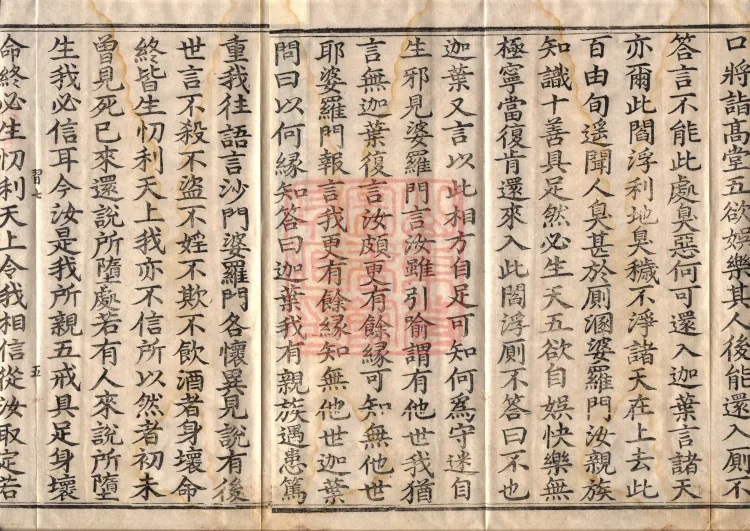 口將詣高堂五欲娛樂其人後能還入廁不
答言不能此處臭惡何可還入迦葉言諸天
亦爾此閻浮利地臭穢不淨諸天在上去此
百由旬遥聞人臭甚於廁溷婆羅門汝親族
知識十善具足然必生天五欲自娛快樂無
極寧當復肯還來入此閻浮廁不答曰不也
迦葉又言以此相方自足可知何爲守迷自
生邪見婆羅門言汝雖引喻謂有他世我猶
言無迦葉復言汝頗更有餘緣可知無他世
耶婆羅門報言我更有餘緣知無他世迦葉
問曰以何緣知答曰迦葉我有親族遇患篤
重我往語言沙門婆羅門各懷異見說有後
世言不殺不盜不婬不欺不飲酒者身壞命
終皆生忉利天上我亦不信所以然者初未
曾見死已來還說所墮處若有人來說所墮
生我必信耳今汝是我所親五戒具足身壞
習七 五
命終必生忉利天上令我相信從汝取定若